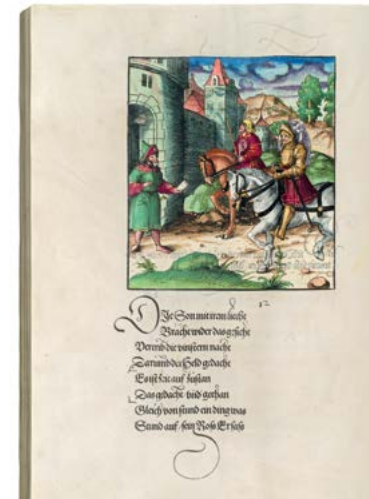 12
Die Son mit irem liecht
Bracht wider das gesicht
Vertrib die vinstern nacht
Darumb der Held gedacht
Es ist Zeit auf zustan
Das gedacht vnd gethan
Gleich von stund ein ding was
Stund auf sein Ross Er sass